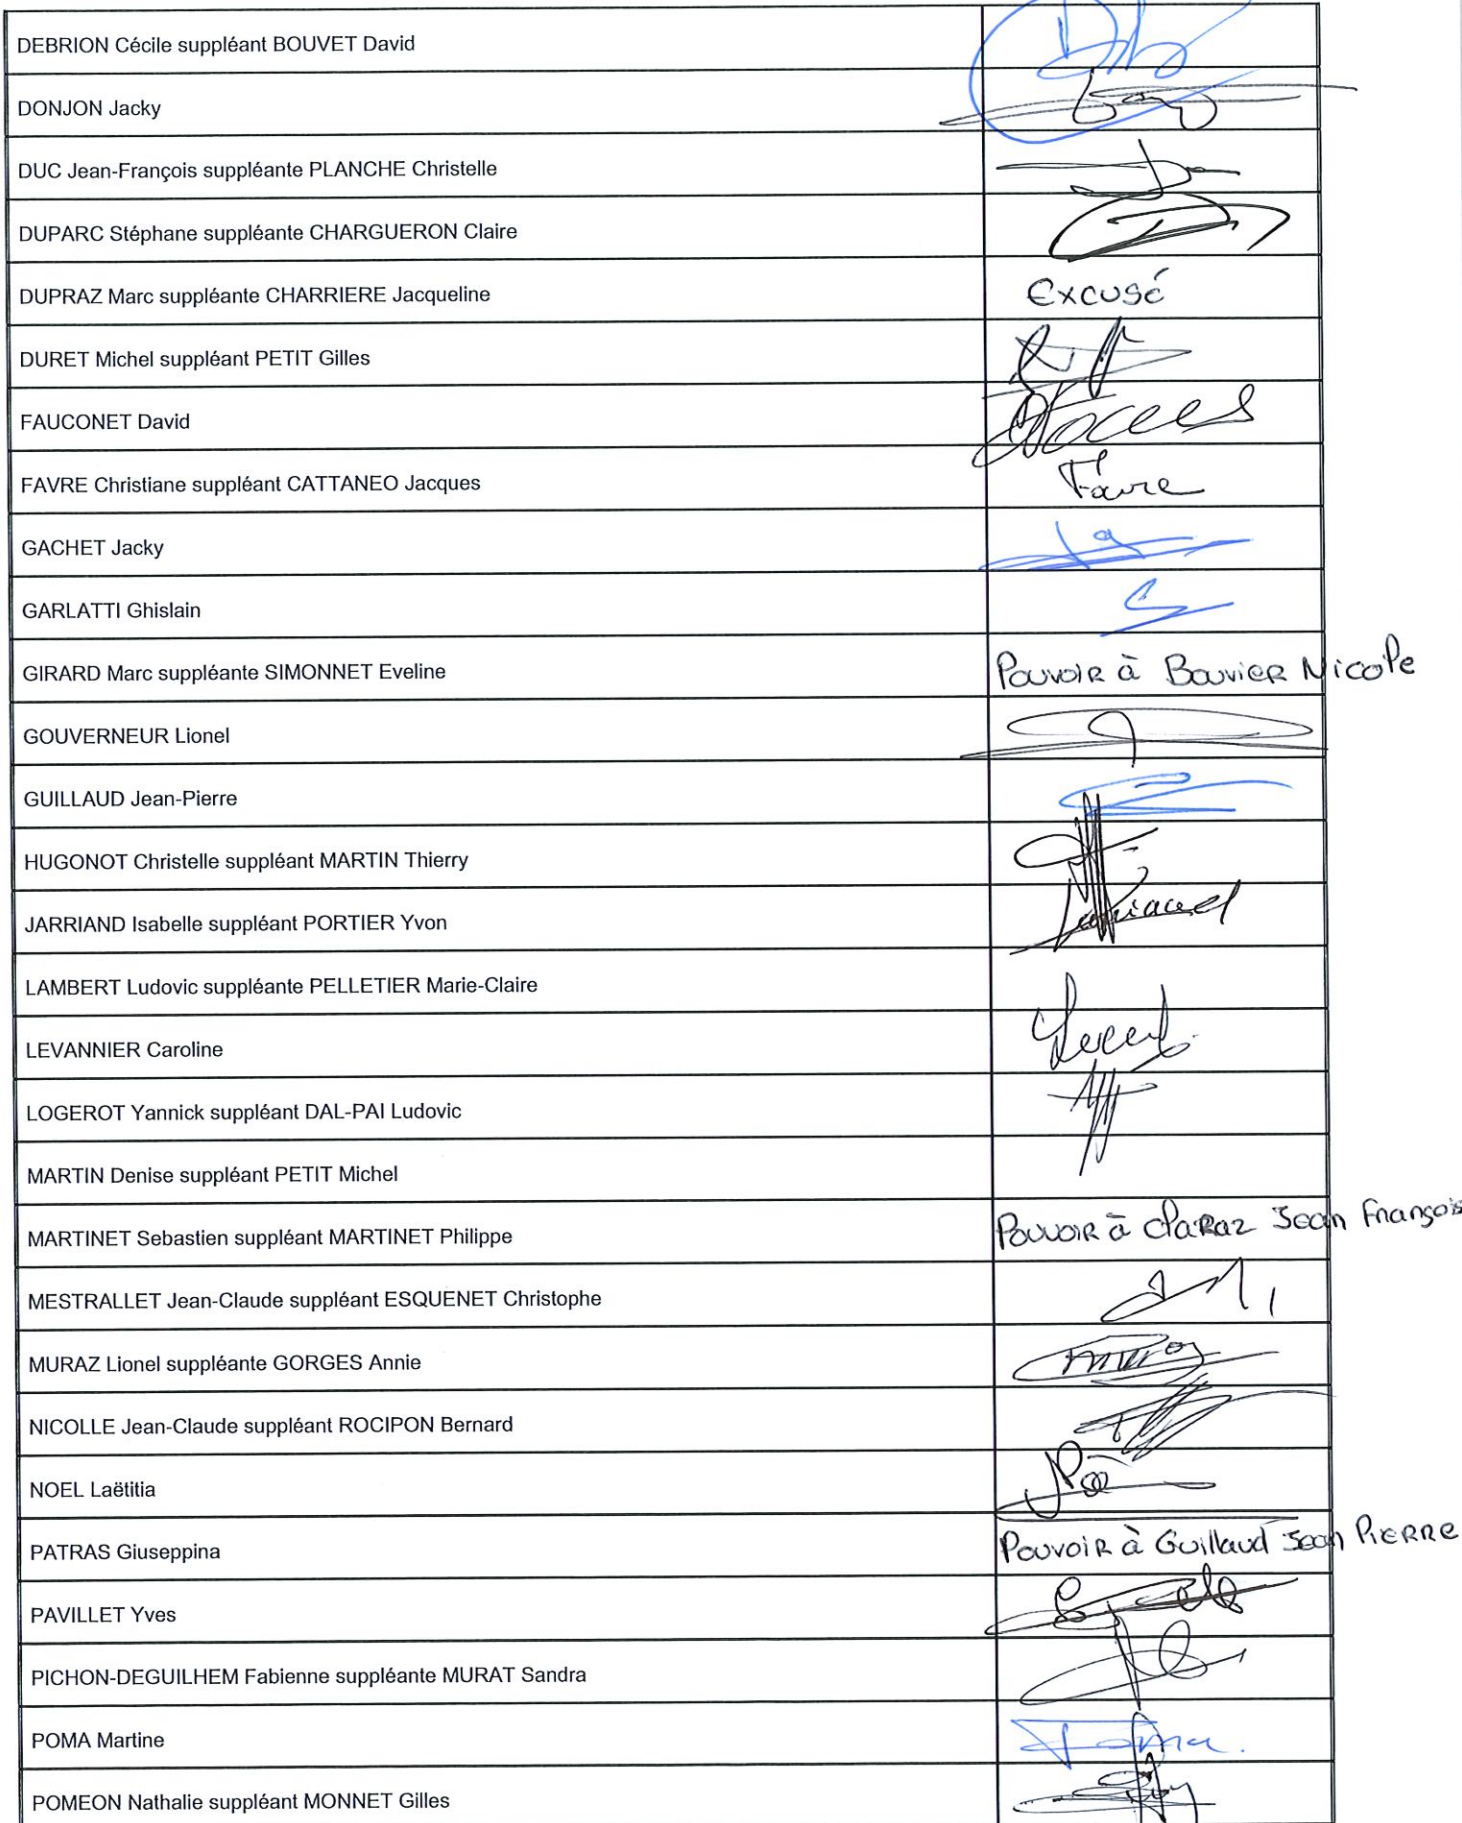 DEBRION Cécile suppléant BOUVET David
DONJON Jacky
DUC Jean-François suppléante PLANCHE Christelle
DUPARC Stéphane suppléante CHARGUERON Claire
DUPRAZ Marc suppléante CHARRIERE Jacqueline Excusé
DURET Michel suppléant PETIT Gilles
FAUCONET David
FAVRE Christiane suppléant CATTANEO Jacques Favre
GACHET Jacky
GARLATTI Ghislain
GIRARD Marc suppléante SIMONNET Eveline Pouvoir à Bouvier Nicole
GOUVERNEUR Lionel
GUILLAUD Jean-Pierre
HUGONOT Christelle suppléant MARTIN Thierry
JARRIAND Isabelle suppléant PORTIER Yvon Jarriand
LAMBERT Ludovic suppléante PELLETIER Marie-Claire
LEVANNIER Caroline
LOGEROT Yannick suppléant DAL-PAI Ludovic
MARTIN Denise suppléant PETIT Michel
MARTINET Sebastien suppléant MARTINET Philippe Pouvoir à Claraz Jean François
MESTRALLET Jean-Claude suppléant ESQUENET Christophe
MURAZ Lionel suppléante GORGES Annie
NICOLLE Jean-Claude suppléant ROCIPON Bernard
NOEL Laëtitia
PATRAS Giuseppina Pouvoir à Guillaud Jean Pierre
PAVILLET Yves
PICHON-DEGUILHEM Fabienne suppléante MURAT Sandra
POMA Martine Poma
POMEON Nathalie suppléant MONNET Gilles